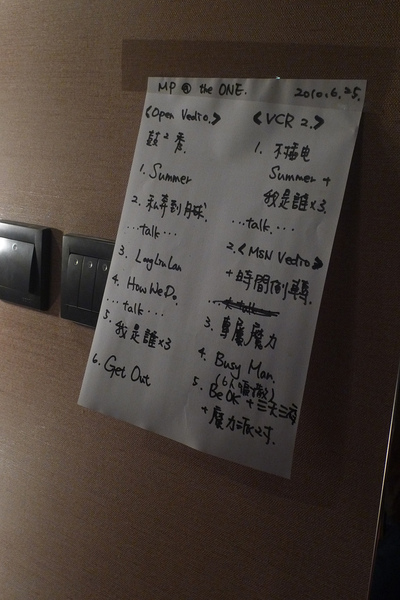 MP @ the ONE.
2010.6.25.
<Open Vedio.>
鼓²秀
1. Summer
2. 私奔到月球
...talk....
3. LangLauLan
4. How We Do.
...talk...
5. 我是誰×3
6. Get Out
<VCR 2.>
1. 不插电
Summer +
我是誰×3.
...talk....
2. <MSN Vedio>
+ 時間倒轉.
3. 專屬魔力
4. Busy Man.
5. Be OK + 三天三夜
+ 魔力